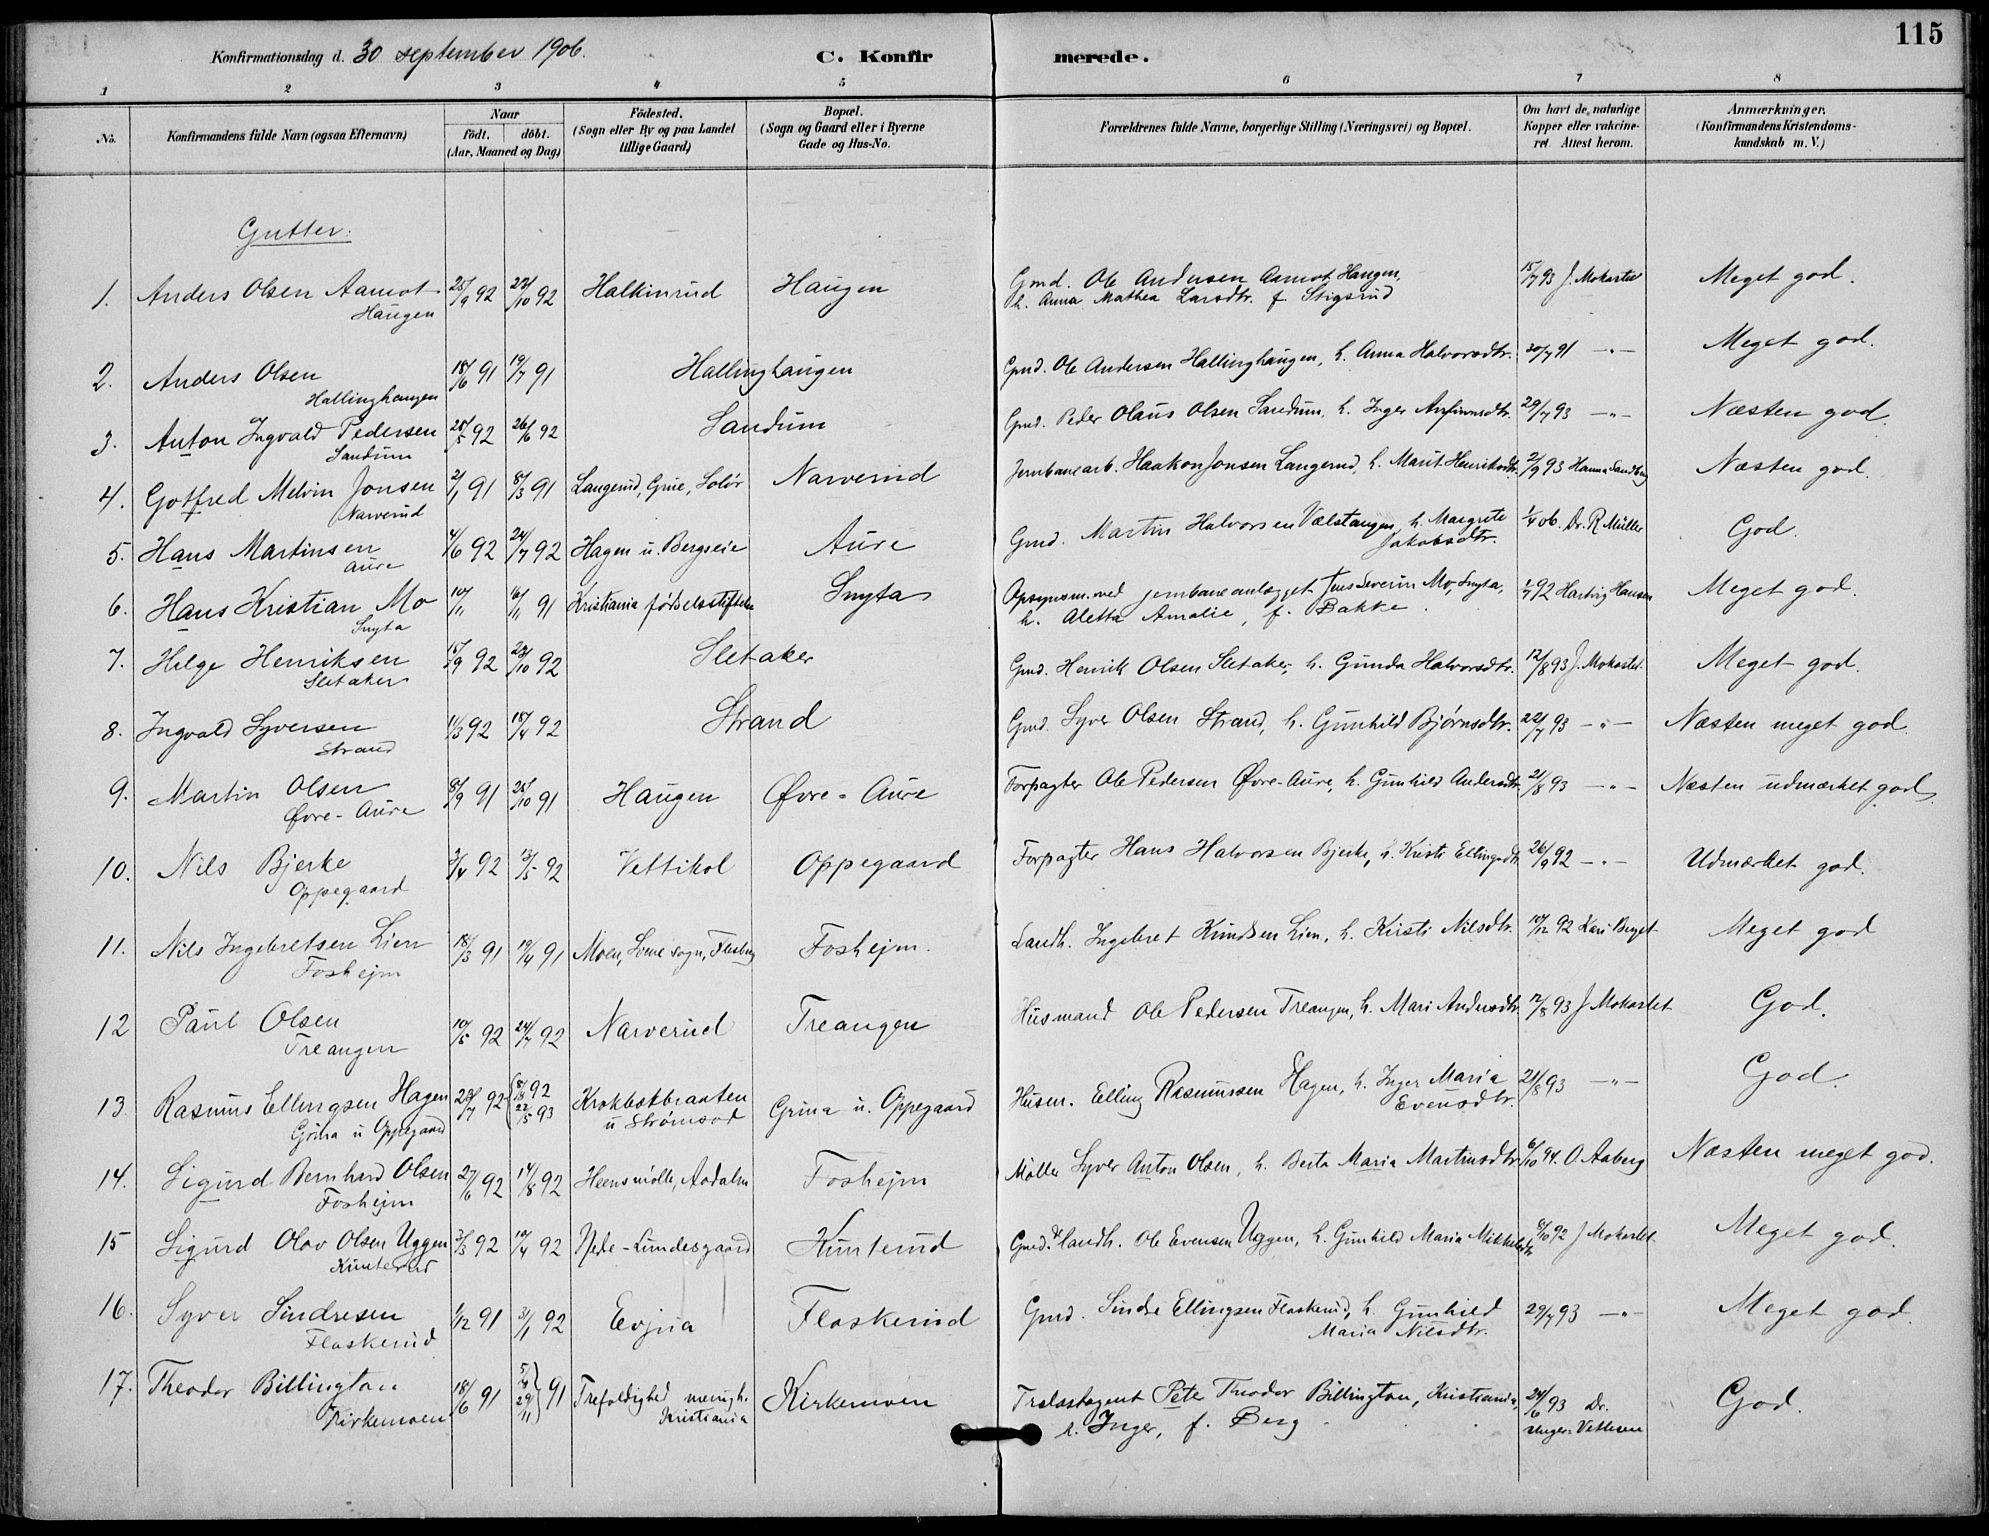 115
Konfirmationsdag d. 30 september 1906. C. Konfirmerede.
1 2 3 4 5 6 7 8
No. Konfirmandens fulde Navn (ogsaa Efternavn) Naar født. døbt. (Aar, Maaned og Dag) Fødested. (Sogn eller By og paa Landet tillige Gaard) Bopæl. (Sogn og Gaard eller i Byerne Gade og Hus-No. Forældrenes fulde Navne, borgerlige Stilling (Næringsvei) og Bopæl. Om havt de naturlige Kopper eller vakcineret. Attest herom. Anmærkninger. (Konfirmandens Kristendomskundskab m. V.)
Gutter:
1. Anders Olsen Aamot 25/9 92 23/10 92 Halkinrud Haugen Gmd. Ole Andersen Aamot Haugen, 15/7 93 J. Mokastet Meget god.
Haugen h. Anna Mathea Larsdtr. f. Stigsrud
2. Anders Olsen 18/6 91 19/7 91 Hallinghaugen Gmd. Ole Andersen Hallinghaugen, h. Anna Halvorsdtr. 30/7 91 -"- Meget god.
Hallinghaugen
3. Anton Ingvald Pedersen 25/5 92 26/6 92 Sandum Gmd. Peder Olaus Olsen Sandum, h. Inger Arfinnsdtr. 29/7 93 -"- Næsten god.
Sandum
4. Gotfred Melvin Jonsen 2/1 91 8/3 91 Langerud, Grue, Solør Narverud Jernbanearb. Haakon Jonsen Langerud, h. Marit Henriksdtr. 2/9 93 Hanna Sandberg Næsten god.
Narverud
5. Hans Martinsen 4/6 92 24/7 92 Hagen u. Bergseie Aure Gmd. Martin Halvorsen Vælstangen, h. Margrete 1/4 06. Dr. R. Müller God.
Aure Jakobsdtr.
6. Hans Kristian Mo 10/11 16/11 91 Kristiania fødselsstiftelse Snyta Opsynsm. ved jernbaneanlægget Jens Severin Mo, Snyta, 1/7 92 Hartvig Hansen Meget god.
Snyta h. Aletta Amalie, f. Bakke.
7. Helge Henriksen 15/9 92 23/10 92 Sletaker Gmd. Henrik Olsen Sletaker, h. Gunda Halvorsdtr. 12/8 93 J. Mokastet. Meget god.
Sletaker
8. Ingvald Syversen 11/3 92 18/4 92 Strand Gmd. Syver Olsen Strand, h. Gunhild Bjørnsdtr. 22/7 93 -"- Næsten meget god.
Strand
9. Martin Olsen 8/9 91 25/10 91 Haugen Øvre-Aure Forpagter Ole Pedersen Øvre-Aure, h. Gunhild Andersdtr. 21/8 93 -"- Næsten udmærket god.
Øvre-Aure
10. Nils Bjerke 3/4 92 13/5 92 Vettikol Oppegaard Forpagter Hans Halvorsen Bjerke, h. Kristi Ellingsdtr. 26/9 92 -"- Udmærket god.
Oppegaard
11. Nils Ingebretsen Lien 18/3 91 19/4 91 Moen, Svene sogn, Flesberg Foshejm. Landh. Ingebret Knudsen Lien, h. Kristi Nilsdtr. 10/12 92 Kari Berget Meget god
Foshejm
12 Paul Olsen 10/5 92 24/7 92 Narverud Treangen Husmand Ole Pedersen Treangen, h. Mari Andersdtr. 12/8 93 J Mokastet God.
Treangen
13. Rasmus Ellingsen Hagen 28/7 92 92 22/5 93 Krokbokbraaten Grina u. Oppegaard Husm. Elling Rasmussen Hagen, h. Inger Maria 21/8 93 -"- God.
Grina u Oppegaard u Strømsod Evensdtr.
14. Sigurd Bernhard Olsen 27/6 92 14/8 92 Heensmølle, Aadalen Foshejm Møller Syver Anton Olsen, h. Berta Maria Martinsdtr. 6/10 94. O. Aaberg Næsten meget god.
Foshejm
15 Sigurd Olav Olsen Uggen 3/3 92 10/4 92 Nede-Lundesgaard Kunterud Gmd. & landh. Ole Evensen Uggen, h. Gunhild Maria Mikkelsdtr. 8/10 92 J Mokastet Meget god.
Kunterud
16. Syver Sindresen 1/12 91 3/1 92 Evjua Flaskerud Gmd. Sindre Ellingsen Flaskerud, h. Gunhild 29/7 93 -"- Meget god.
Flaskerud Maria Nilsdtr.
17. Theodor Billington 18/6 91 29/11 91 Trefoldighed menigh. Kirkemoen Trelastagent Peter Theodor Billington, Kristiania, 24/6 93 Dr. God.
Kirkemoen Kristiania h. Inger, f. Berg Unger-Vetlesen